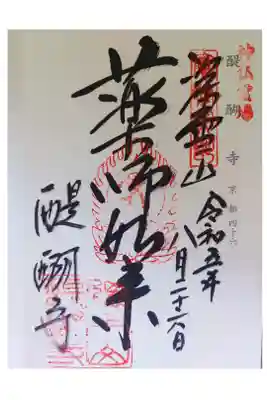 神仏霊場
醍醐寺
京都四十六
深雪山
令和五年
八月二十六日
薬師如来
醍醐寺